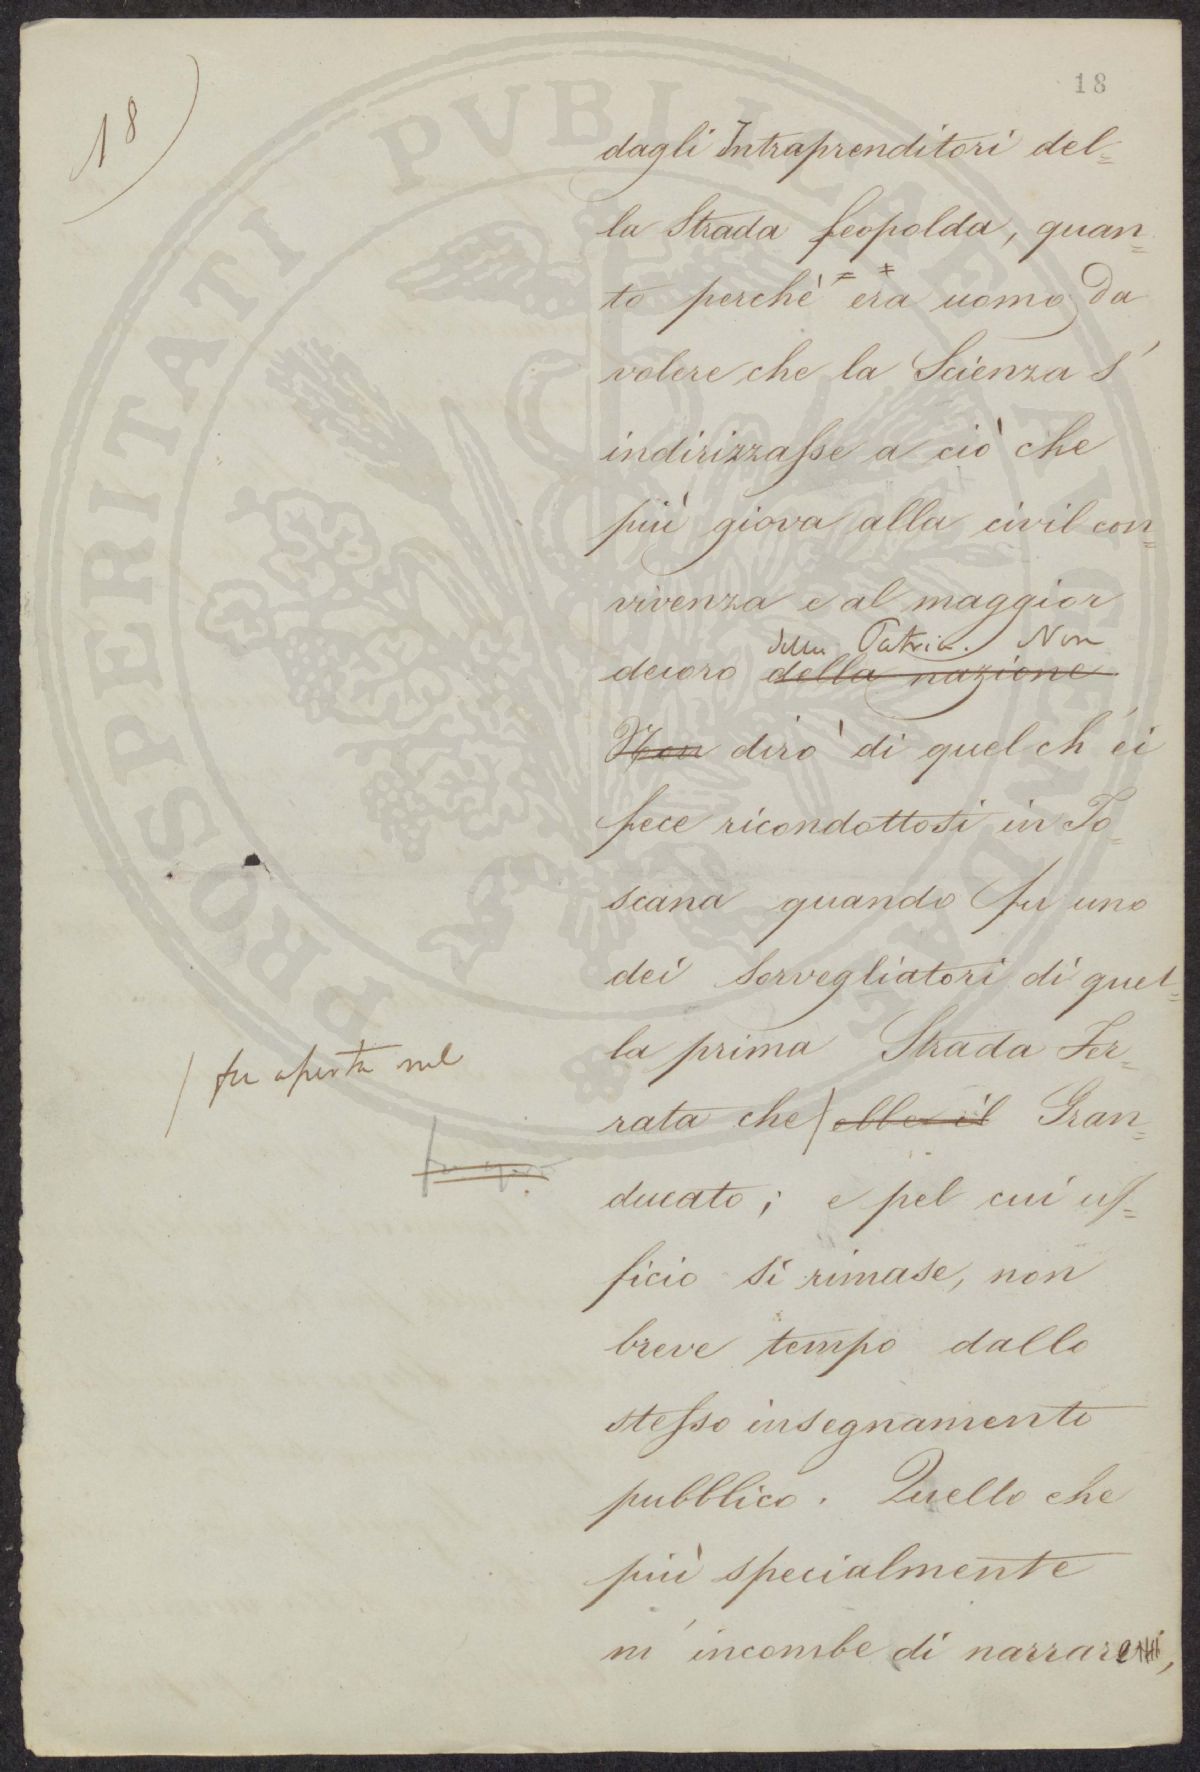 18)
18
dagli Intraprenditori del=
la Strada Leopolda, quan=
to perchè era uomo da
volere che la Scienza s'
indirizzasse a ciò che
più giova alla civil con=
vivenza e al maggior
della Patria. Non
decoro della nazione
Non dirò di quel ch'ei
fece ricondottosi in To=
scana quando fu uno
dei sorvegliatori di quel=
la prima Strada Fer=
/ fu aperta nel
rata che / ebbe il Gran=
ducato; e pel cui uf=
ficio si rimase, non
breve tempo dallo
stesso insegnamento
pubblico. Quello che
più specialmente
m'incombe di narrare,
PROSPERITATI PVBLICAE AVGENDAE